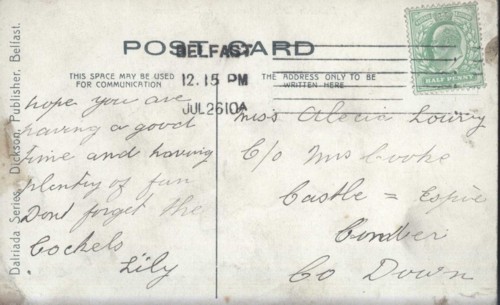 POST CARD
BELFAST
12.15 PM
JUL 26 10 A
HALF PENNY
THIS SPACE MAY BE USED
FOR COMMUNICATION
THE ADDRESS ONLY TO BE
WRITTEN HERE
Dalriada Series, Dickson, Publisher, Belfast.
hope you are
having a good
time and having
plenty of fun
Dont forget the
Cockels
Lily
Miss Alecia Lowry
C/o Mrs Cooke
Castle = Espie
Comber
Co Down